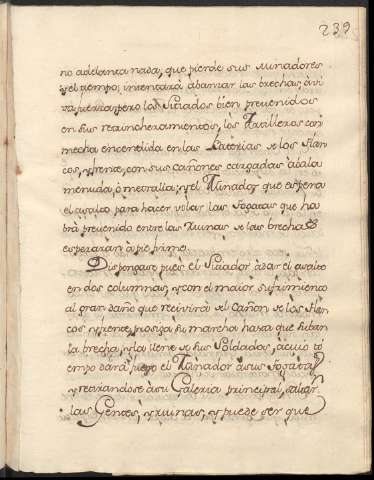 239
no adelanta nada, que pierde sus minadores
y el tiempo; intentarà abanzar las brechas, à vi
va fuerza; pero los Sitiados bien prevenidos
en sus retrincheramientos, los Artilleros con
mecha encendida en las Baterias de los flan
cos, y frente, con sus cañones cargados à bala
menuda, ò metralla; y el Minador que espera
el asalto para hacer volar las fogatas que ha
brà prevenido entre las Ruinas de las brechas
esperaràn à pie firme.
Dispongase pues el Sitiador à dar el asalto
en dos columnas, y con el maior sufrimiento
al gran daño que recivirà del Cañon de los flan
cos y frente, prosiga su marcha hasta que suban
la brecha, y la llene de sus Soldados, à cuio ti
empo darà fuego el Minador à sus fogatas
y retirandose à su Galeria principal,
las Gentes, y ruinas, y puede ser que